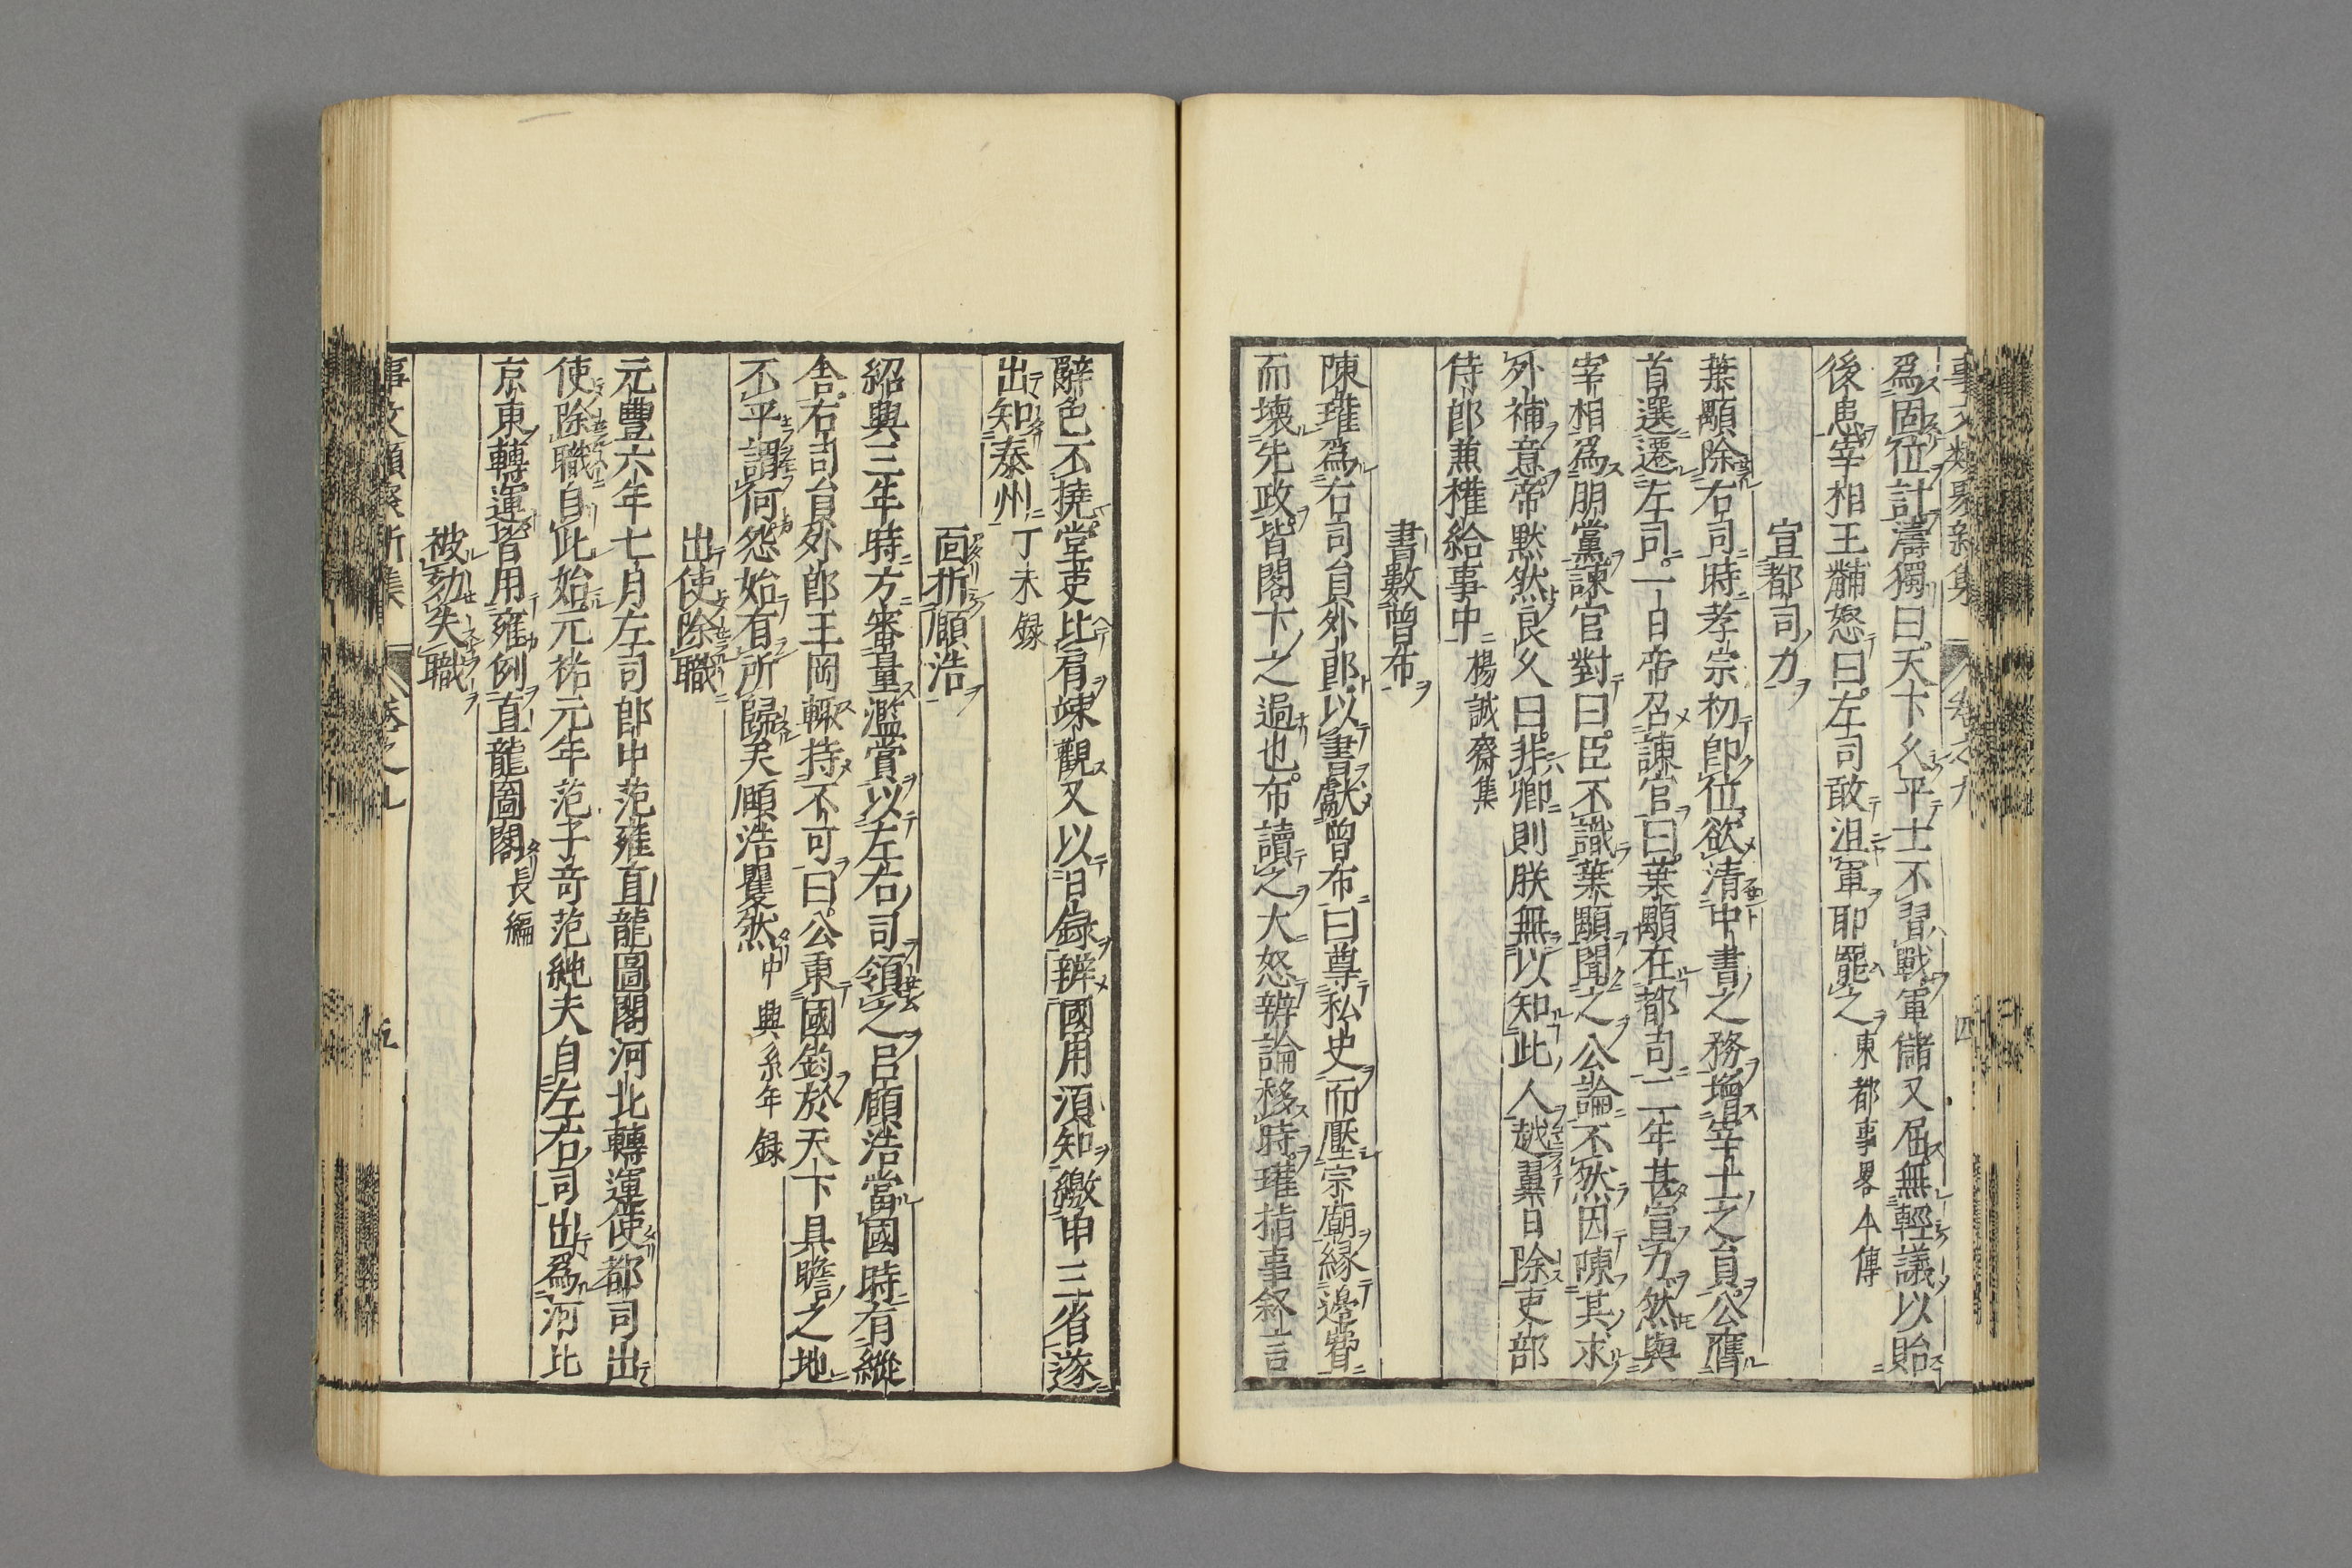 爲固位計濤獨曰天下久平士不習戰軍儲又屈無輕議以貽
後患宰相王黼怒曰左司敢沮軍耶罷之東都事畧本傳
宣都司力
葉顒除右司時孝宗初卽位欲淸中書之務增宰士之員公膺
首選遷左司一日帝召諫官曰葉顒在都司二年甚宣力然與
宰相爲朋黨諫官對曰臣不識葉顒聞之公論不然因陳其求
外補意帝默然良久曰非卿則朕無以知此人越翼日除吏部
侍郎兼權給事中楊誠齋集
書數曾布
陳瓘爲右司員外郎以書獻曾布曰尊私史而壓宗廟緣邊費
而壞先政皆閣下之過也布讀之大怒辨論移時瓘指事叙言
辭色不撓堂吏比肩竦觀又以日録辨國用須知繳申三省遂
出知泰州丁未録
面折頤浩
紹興三年時方審量濫賞以左右司領之吕頤浩當國時有縱
舍右司員外郎王岡輙持不可曰公秉國鈞於天下具瞻之地
不平謂何怨始有所歸矣頤浩瞿然中興系年録
出使除職
元豐六年七月左司郎中范雍直龍圖閣河北轉運使都司出
使除職自此始元祐元年范子竒范純夫自左右司出爲河北
京東轉運皆用雍例直龍圖閣長編
被劾失職
事文類聚新集 卷之九 五